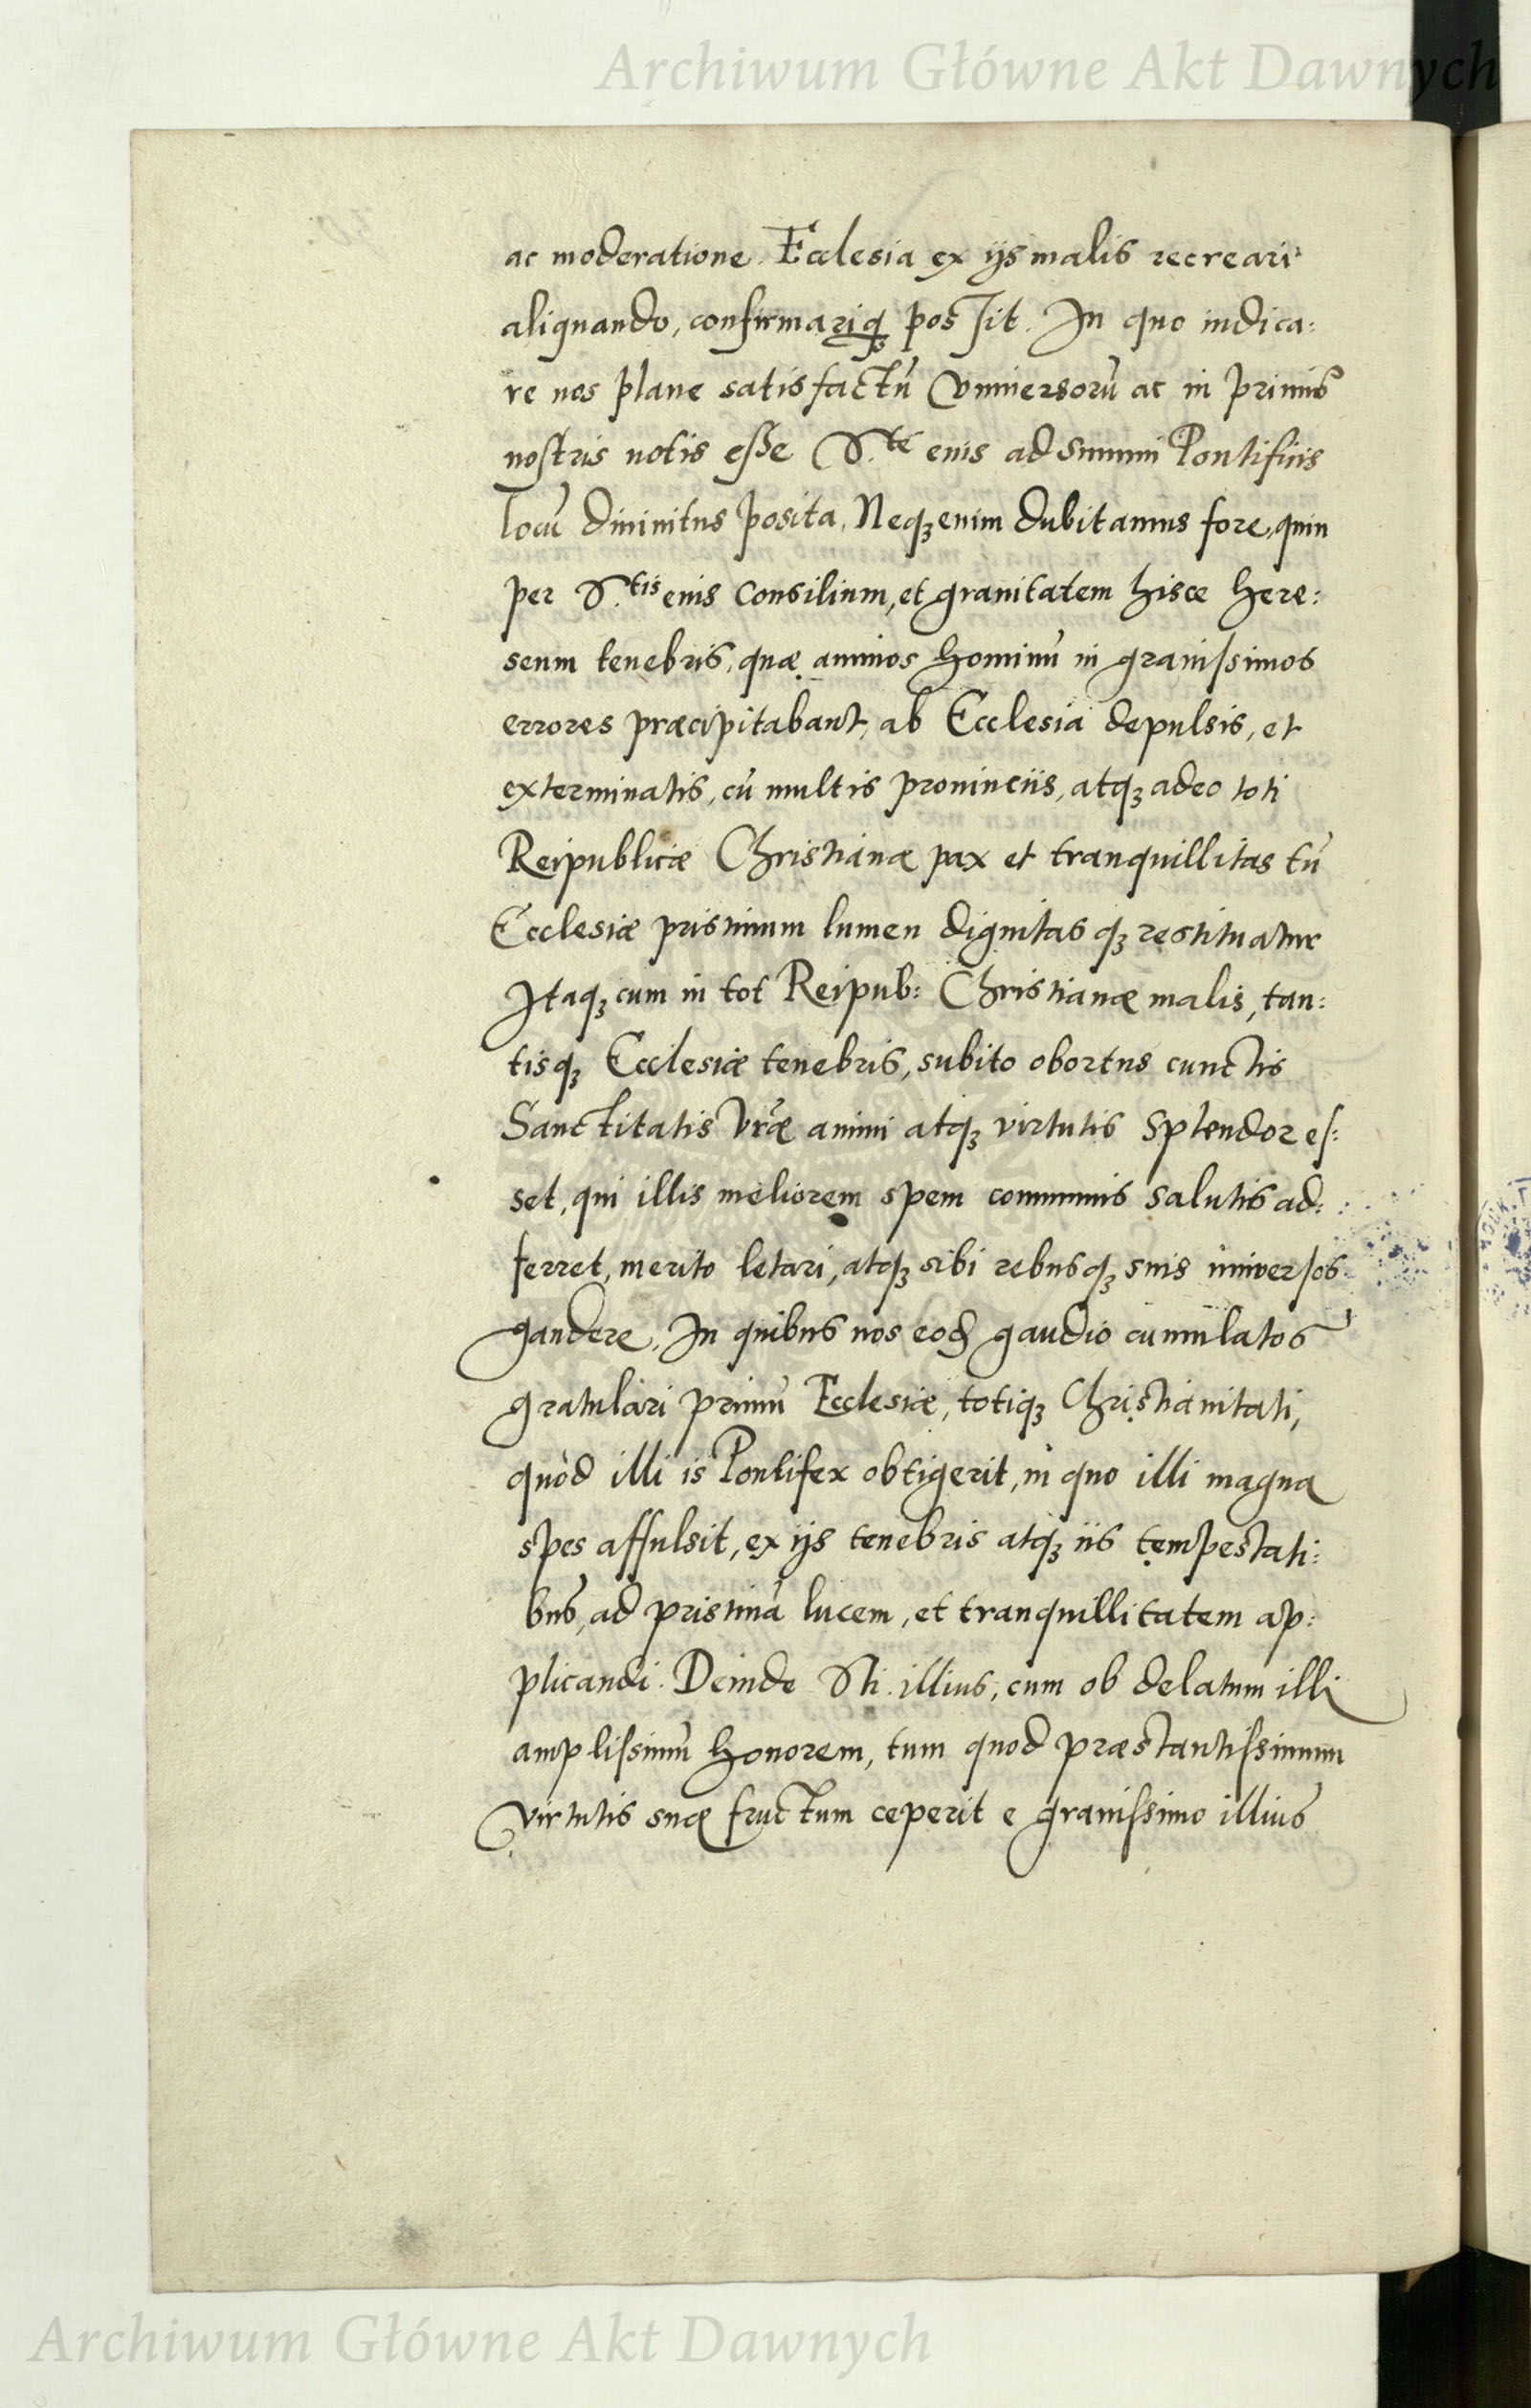 Archiwum Główne Akt Dawnych
ac moderatione Ecclesia ex ijs malis recreari
aliquando, confirmariq; possit. In quo iudica:
re nos plane satisfactũ Vniuersorũ ac in primis
nostris votis eße S.te eius ad summi Pontificis
locũ diuinitus posita, Neq; enim dubitamus fore, quin
per S.tis eius consilium, et grauitatem hisce here:
seum tenebris, quæ animos hominũ in grauissimos
errores præcipitabant, ab Ecclesia depulsis, et
exterminatis, cũ multis prouinciis, atq; adeo toti
Reipublicæ Christianæ pax et tranquillitas tũ
Ecclesiæ pristinum lumen dignitasq; restituatur
Itaq; cum in tot Reipub: Christianæ malis, tan:
tisq; Ecclesiæ tenebris, subito obortus cunctis
Sanctitatis Vr̃æ animi atq; virtutis splendor es:
set, qui illis meliorem spem communis salutis ad:
ferret, merito letari, atq; sibi rebusq; suis uniuersos
gaudere. In quibus nos eod gaudio cumulatos
gratulari primũ Ecclesiæ, totiq; Christianitati,
quòd illi is Pontifex obtigerit, in quo illi magna
spes affulsit, ex ijs tenebris atq; iis tempestati:
bus, ad pristinã lucem, et tranquillitatem ap:
plicandi. Deinde Sti. illius, cum ob delatum illi
amplissimũ honorem, tum quod præstantissimum
virtutis suæ fructum ceperit e grauissimo illius
Archiwum Główne Akt Dawnych